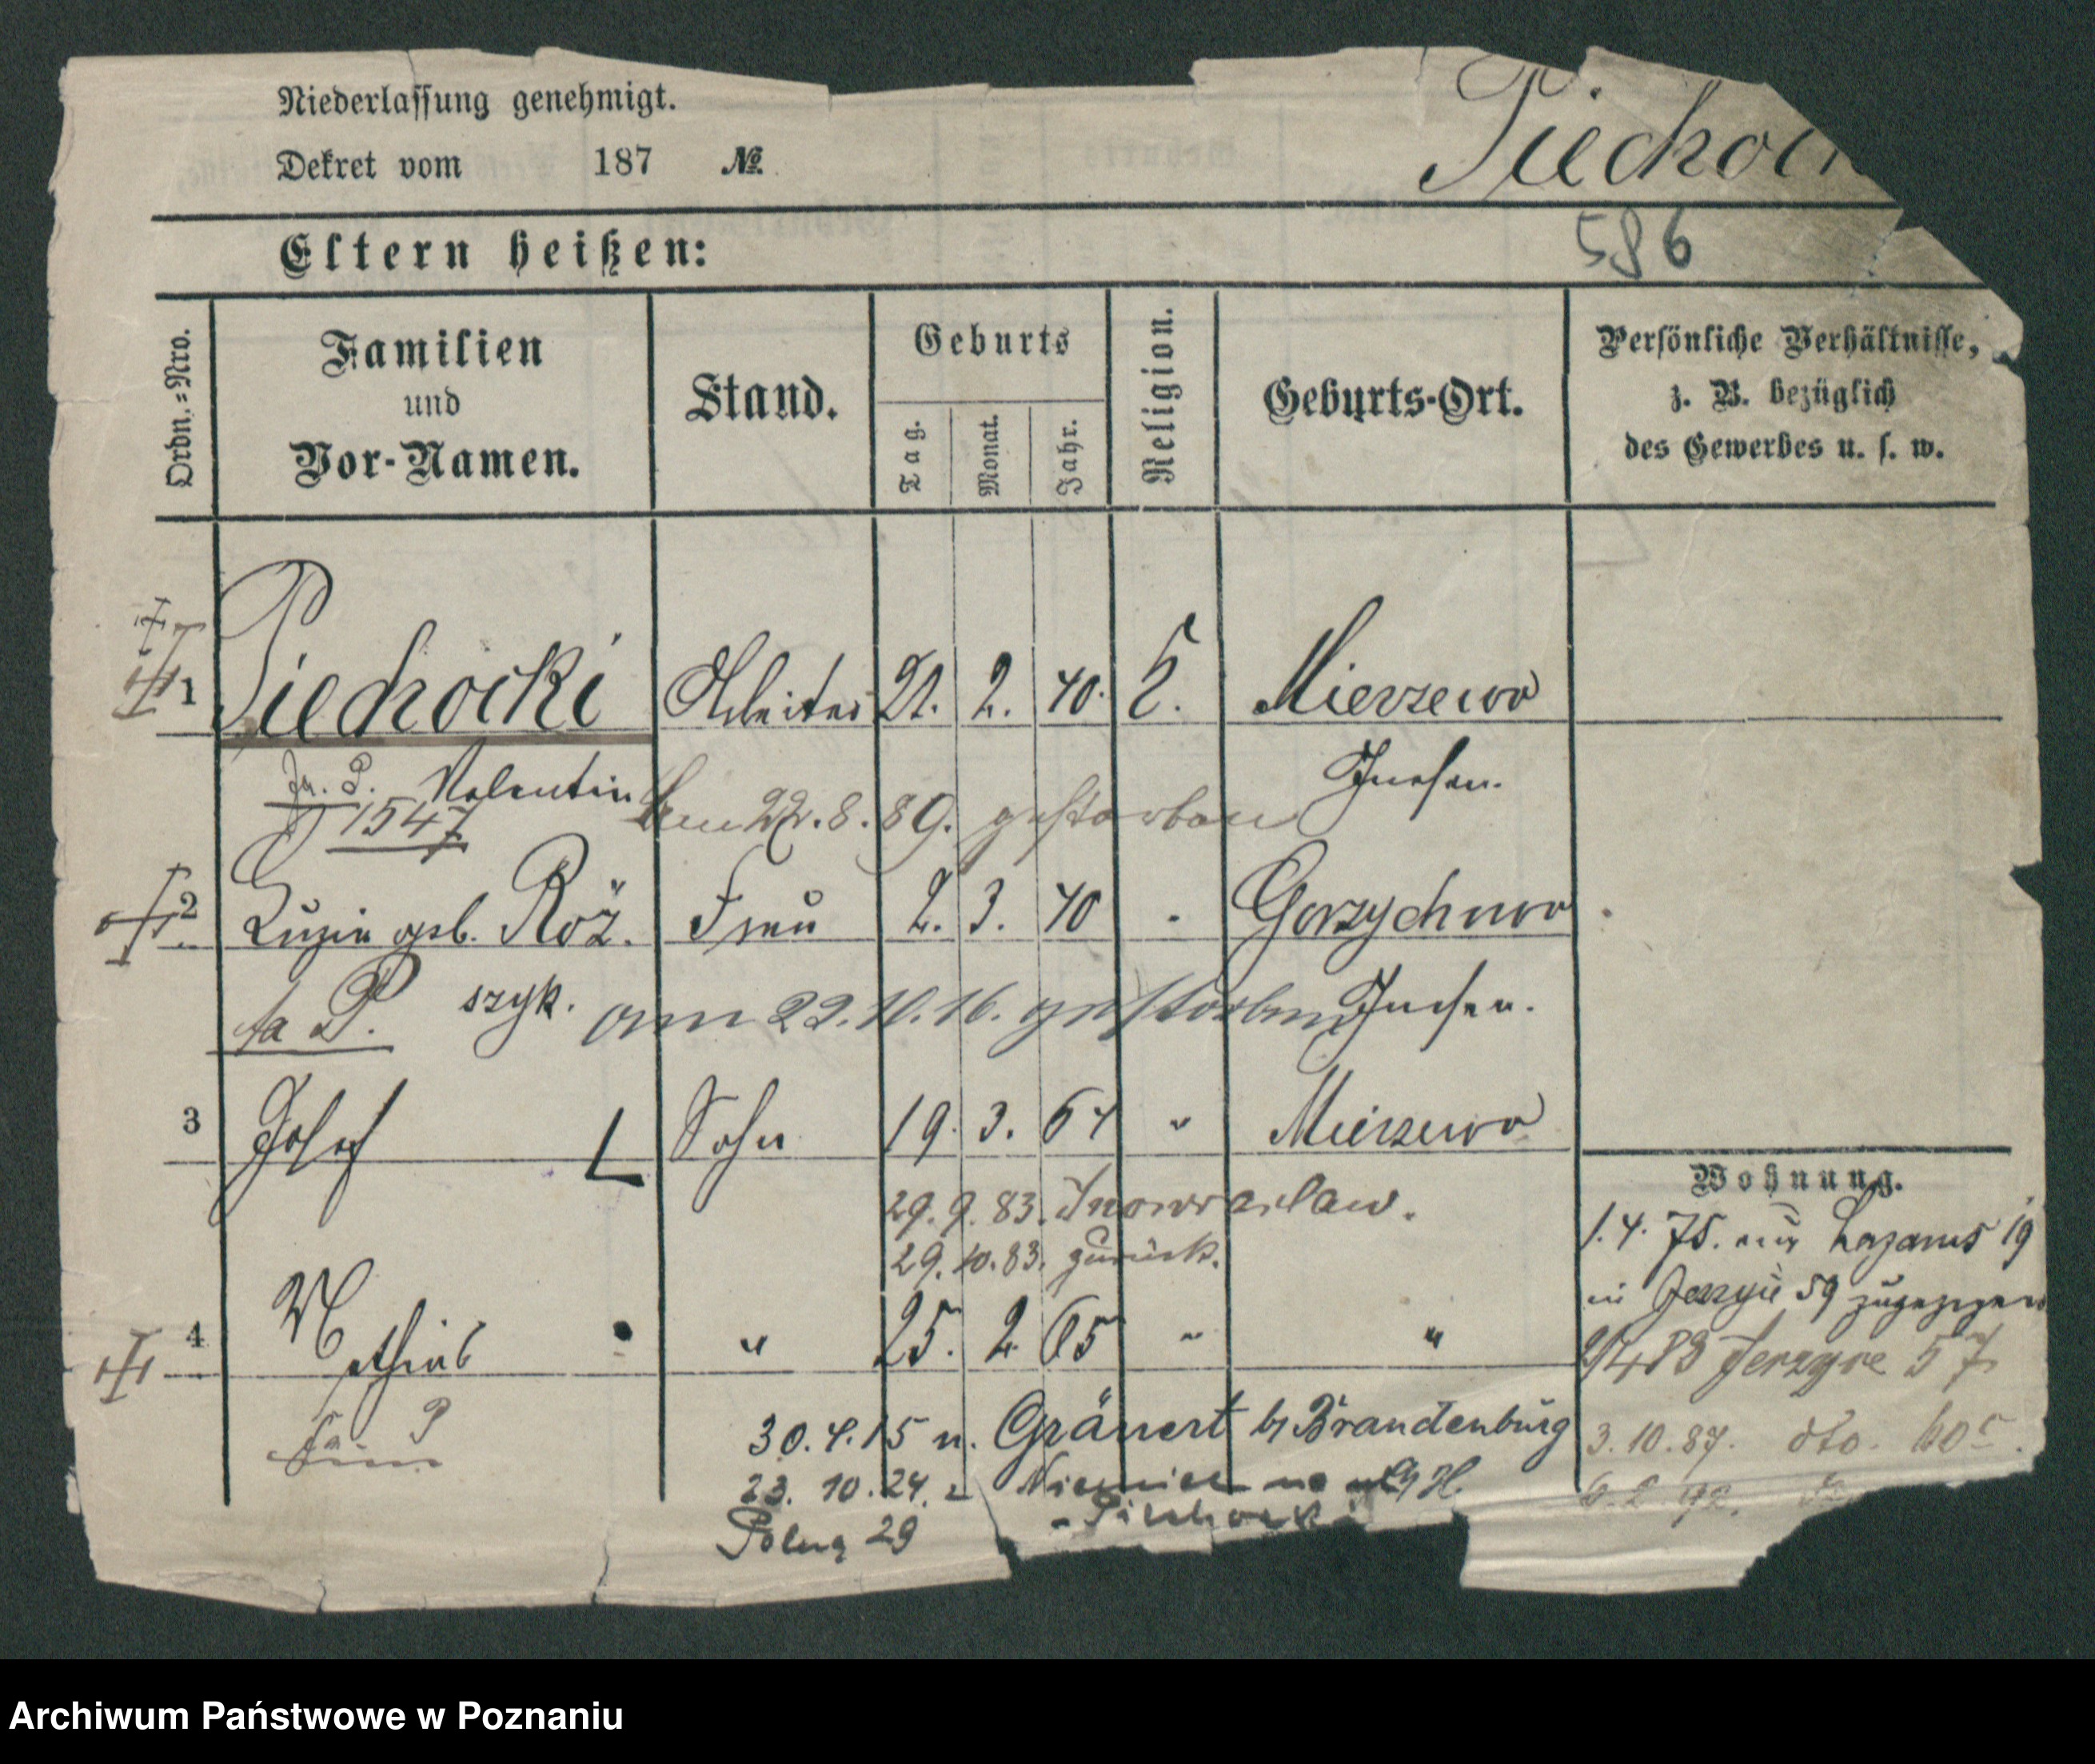 Niederlassung genehmigt.
Dekret vom 187 №
Piechocki
Eltern heißen:
586
Ordn.=Nro.
Familien
und
Vor-Namen.
Stand.
Geburts
Tag.
Monat.
Jahr.
Religion.
Geburts-Ort.
Persönliche Verhältnisse,
z. B. bezüglich
des Gewerbes u. s. w.
1 Piechocki Arbeiter 21. 2. 40. k. Mierzewo
P. Valentin Gnesen.
1547 den 22.8.89. gestorben
2 Luzie geb. Róż. Frau 2. 3. 40 " Gorzychowo
P. szyk. am 22.11.16. gestorben Gnesen.
3 Josef Sohn 19. 3. 64 " Mierzewo
29.9.83. Inowrazlaw.
29.10.83. zurück.
Wohnung.
1.4.75. aus Lazarus 19
in Jerzyce 59 zugezogen
4 Mathias " 25. 2. 65 " "
83 Jerzyce 57
P
30.4.15 n. Gränert b/ Brandenburg
3.10.87. dto. 60
23.10.24.
Piechocki
29
92.
Archiwum Państwowe w Poznaniu